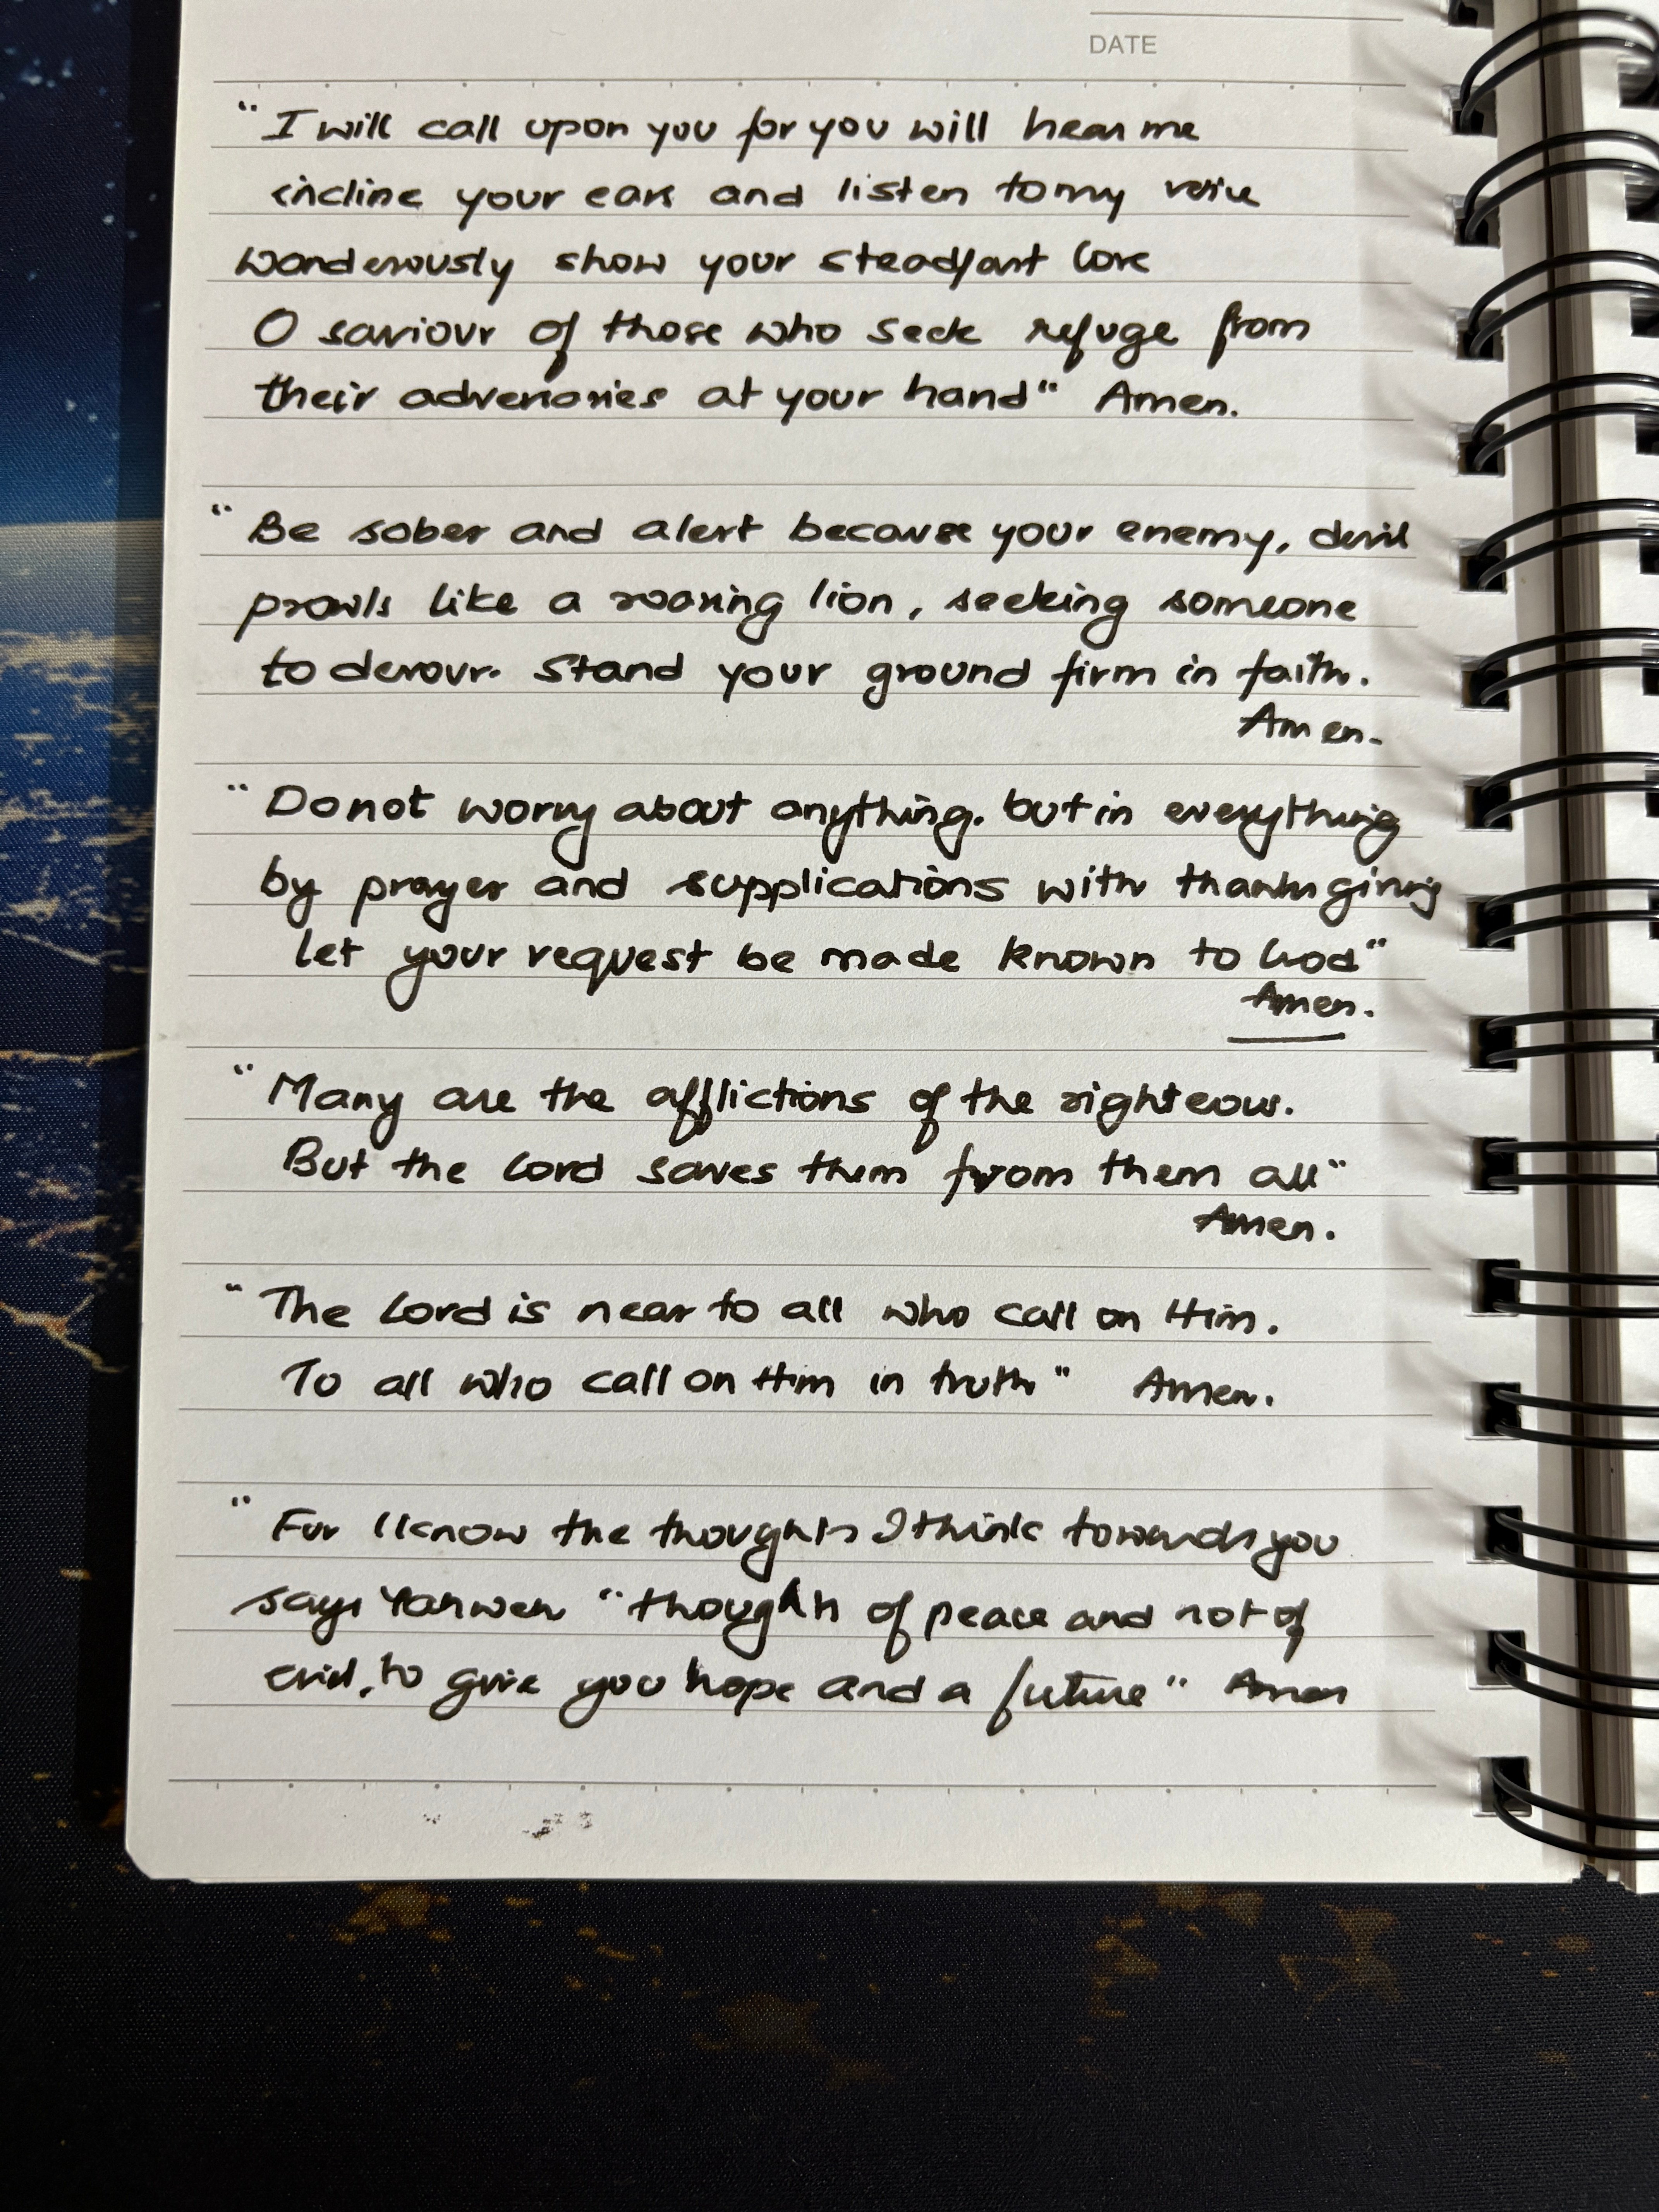 DATE
"I will call upon you for you will hear me
incline your ears and listen to my voice
wonderously show your steadfast love
O saviour of those who seek refuge from
their adversaries at your hand" Amen.
"Be sober and alert because your enemy, devil
prowls like a roaring lion, seeking someone
to devour. Stand your ground firm in faith.
Amen.
"Do not worry about anything. but in everything
by prayer and supplications with thanksgiving
let your request be made known to God"
Amen.
"Many are the afflictions of the righteous.
But the Lord saves them from them all"
Amen.
"The Lord is near to all who call on Him.
To all who call on Him in truth" Amen.
"For I know the thoughts I think towards you
says Yahweh "thoughts of peace and not of
evil, to give you hope and a future" Amen